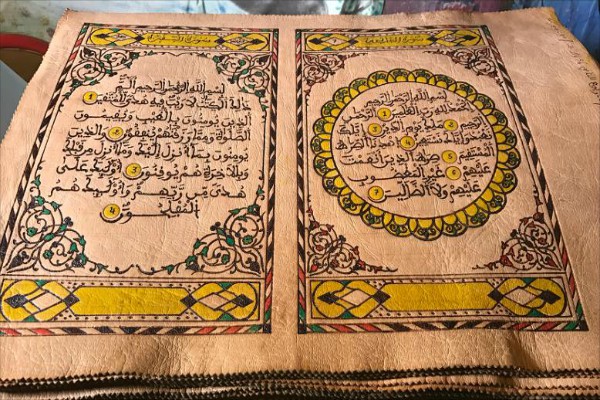 بسم الله الرحمن الرحيم
الحمد لله رب العلمين 1 الرحمن
الرحيم 2 ملك يوم الدين 3 إياك
نعبد وإياك نستعين 4 اهدنا الصراط
المستقيم 5 صراط الذين أنعمت
عليهم 6 غير المغضوب
عليهم ولا الضالين 7
بسم الله الرحمن الرحيم الم
ذلك الكتب لا ريب فيه هدى للمتقين 1
الذين يومنون بالغيب ويقيمون
الصلوة ومما رزقنهم ينفقون 2 والذين
يومنون بما أنزل إليك وما أنزل من قبلك
وبالاخرة هم يوقنون 3 أولئك على
هدى من ربهم وأولئك هم
المفلحون 4